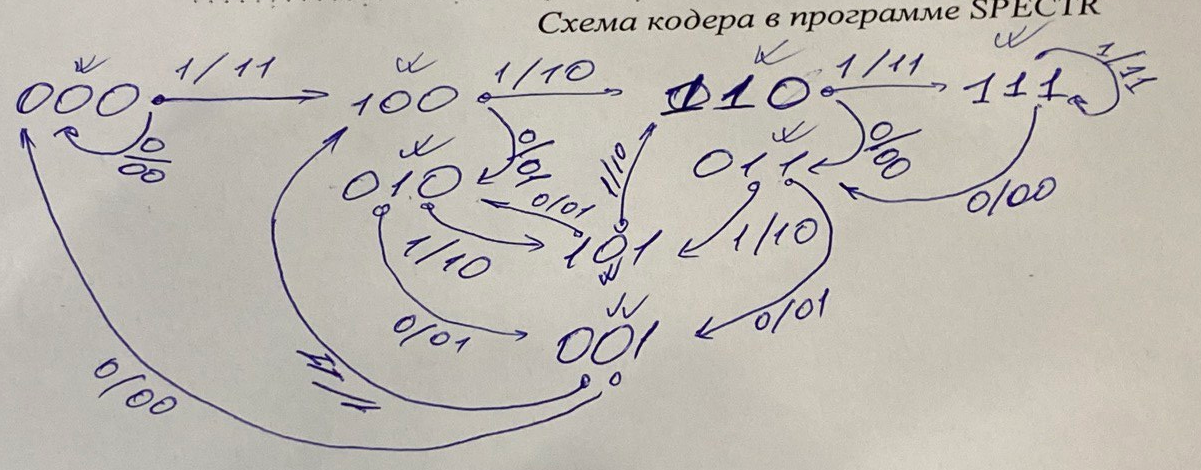 Схема кодера в программе SPECTR
1/11 1/10 1/11 1/11
000 100 110 111
0/00 0/01 0/00
010 011
0/01 1/10 0/00
1/10 101 1/10
0/01 001 0/01
0/00 1/11